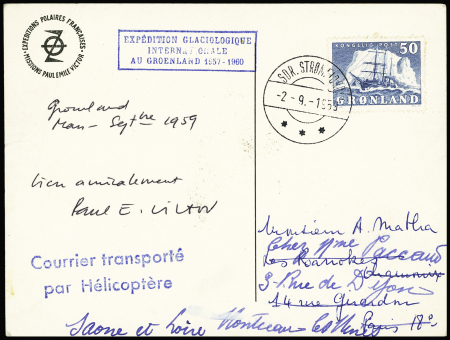 EXPEDITIONS POLAIRES FRANÇAISES
MISSIONS PAUL EMILE VICTOR
EXPÉDITION GLACIOLOGIQUE
INTERNATIONALE
AU GROENLAND 1957-1960
KONGELIG POST
50
GRØNLAND
SDR. STRØMFJORD
-2-9.-1959
Groenland
Mars-Septbre 1959
bien amicalement
Paul E. Victor
Courrier transporté
par Hélicoptère
Monsieur A. Matha
Chez Mme Paccaud
Les
3 Rue de Dijon
14 rue Girardon
Paris 18e
Saone et Loire Montceau les Mines